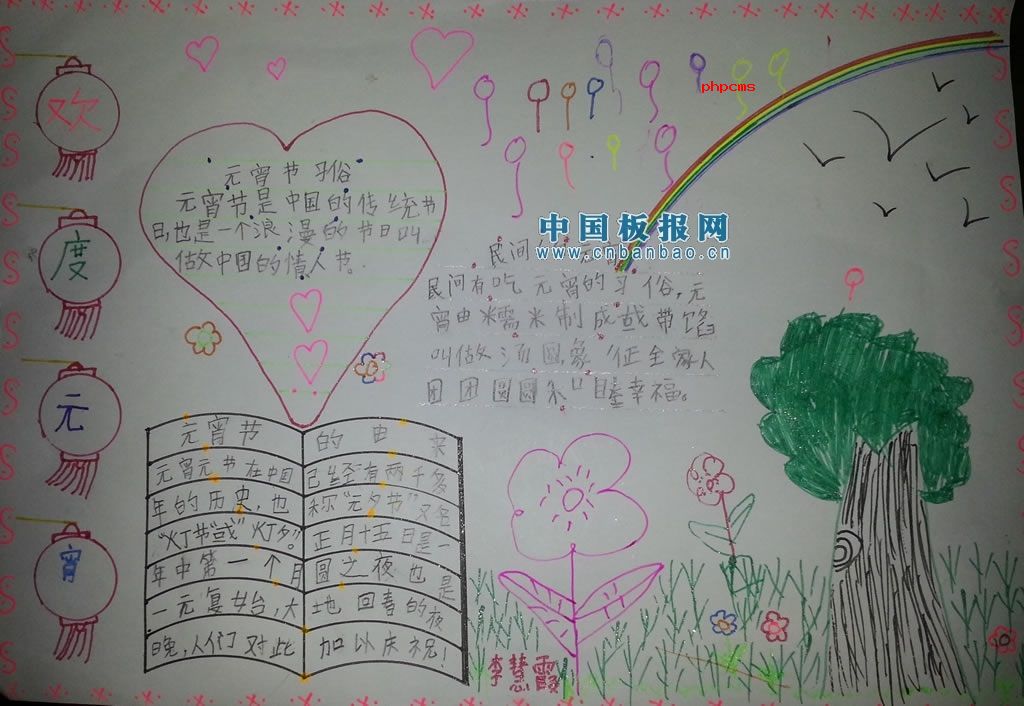 欢
度
元
宵
元宵节习俗
元宵节是中国的传统节
日,也是一个浪漫的节日叫
做中国的情人节。
phpcms
中国板报网
www.cnbanbao.cn
民间
民间有吃元宵的习俗,元
宵由糯米制成或带馅
叫做汤圆,象征全家人
团团圆圆和睦幸福。
元宵节的由来
元宵元节在中国已经有两千多
年的历史,也称“元夕节”又名
“灯节”或“灯夕”。正月十五日是一
年中第一个月圆之夜也是
一元复始,大地回春的夜
晚,人们对此加以庆祝!
李慧霞